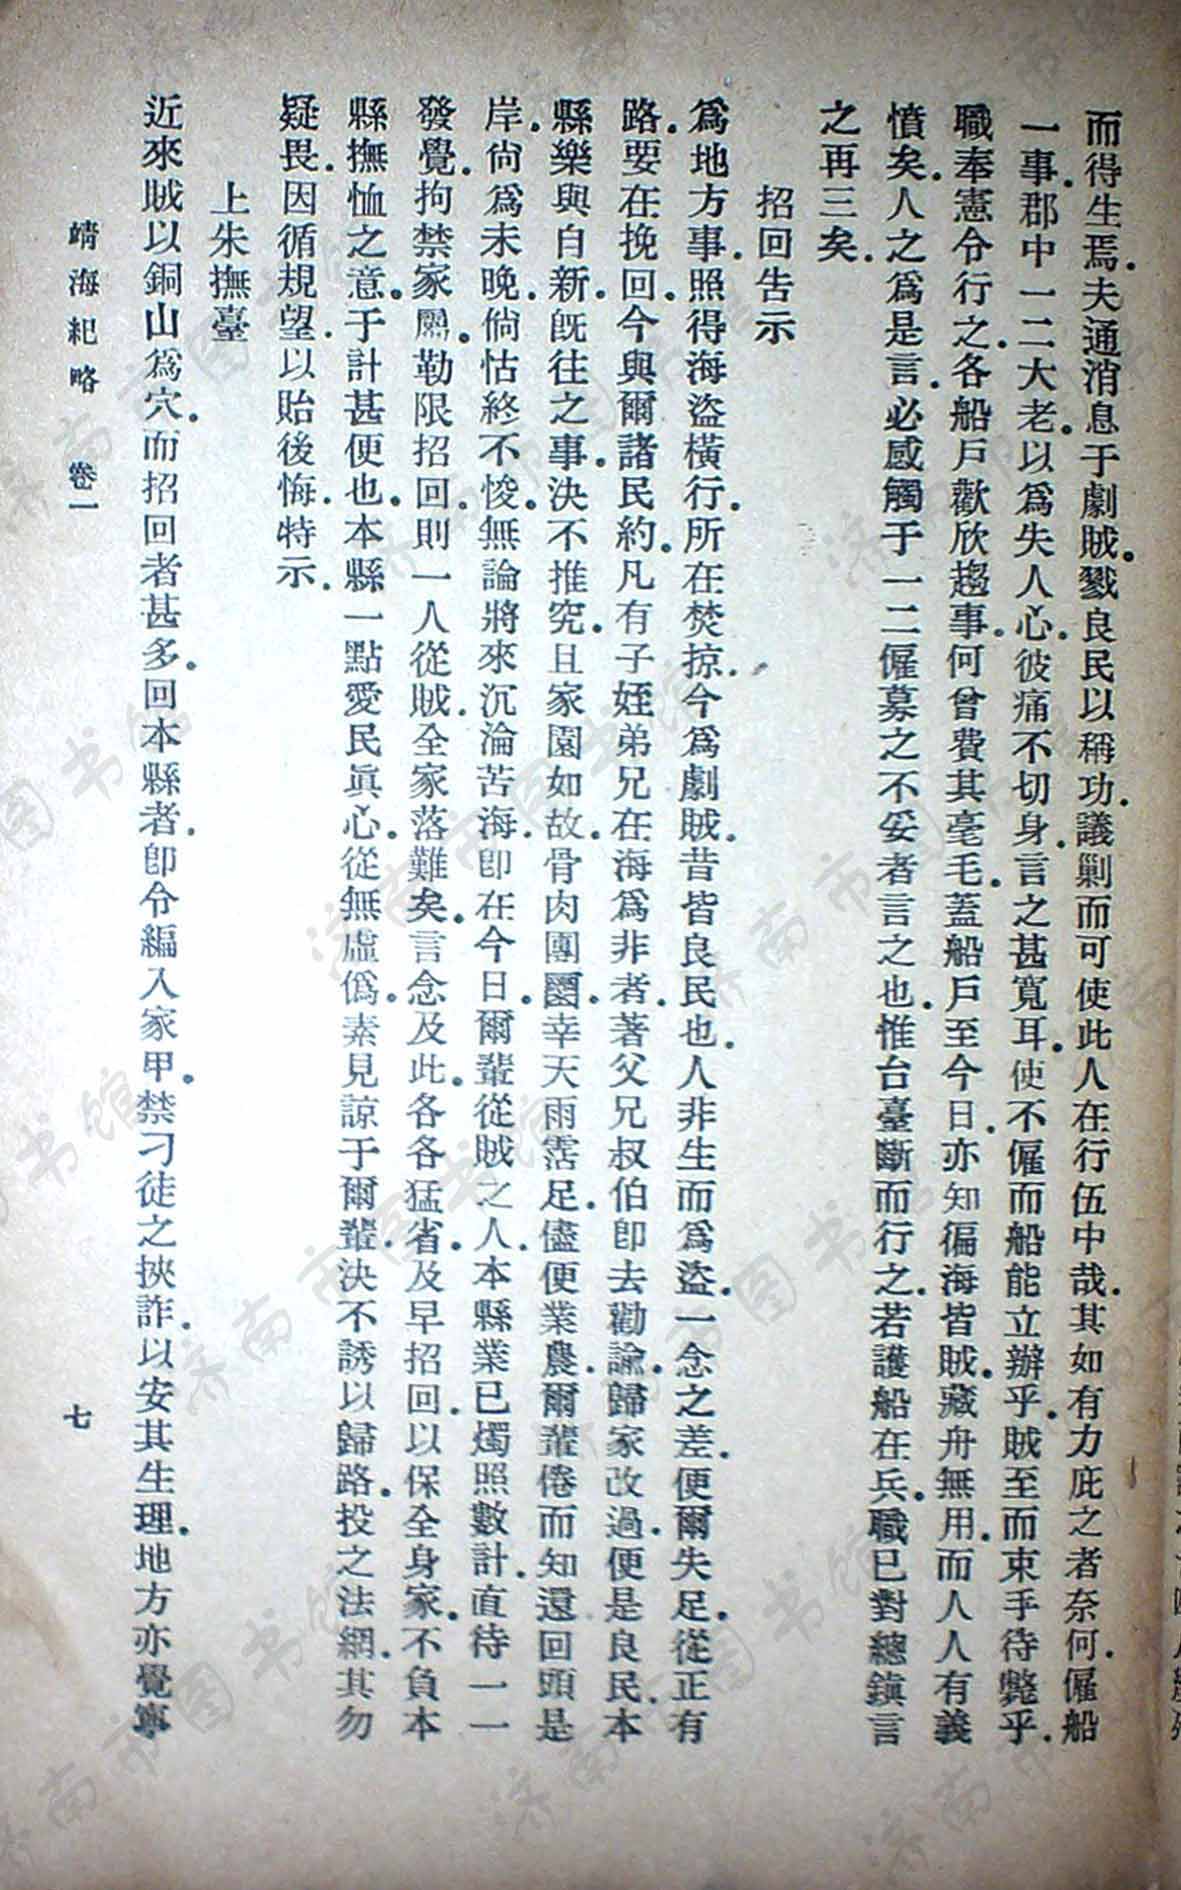 而得生焉.夫通消息于劇賊.戮良民以稱功.議剿而可使此人在行伍中哉.其如有力庇之者奈何.僱船
一事.郡中一二大老.以爲失人心.彼痛不切身.言之甚寬耳.使不僱而船能立辦乎.賊至而束手待斃乎.
職奉憲令行之.各船戶歡欣趨事.何曾費其毫毛.蓋船戶至今日.亦知徧海皆賊.藏舟無用.而人人有義
憤矣.人之爲是言.必感觸于一二僱募之不妥者言之也.惟台臺斷而行之.若護船在兵.職已對總鎮言
之再三矣.
招回告示
爲地方事.照得海盜橫行.所在焚掠.今爲劇賊.昔皆良民也.人非生而爲盜.一念之差.便爾失足.從正有
路.要在挽回.今與爾諸民約.凡有子姪弟兄在海爲非者.著父兄叔伯卽去勸諭.歸家改過.便是良民.本
縣樂與自新.旣往之事.決不推究.且家園如故.骨肉團圞.幸天雨霑足.儘便業農.爾輩倦而知還.回頭是
岸.尙爲未晚.倘怙終不悛.無論將來沉淪苦海.卽在今日.爾輩從賊之人.本縣業已燭照數計.直待一一
發覺.拘禁家屬.勒限招回.則一人從賊.全家落難矣.言念及此.各各猛省.及早招回.以保全身家.不負本
縣撫恤之意.于計甚便也.本縣一點愛民眞心.從無虛僞.素見諒于爾輩.決不誘以歸路.投之法網.其勿
疑畏.因循規望.以貽後悔.特示.
上朱撫臺
近來賊以銅山爲穴.而招回者甚多.回本縣者.卽令編入家甲.禁刁徒之挾詐.以安其生理.地方亦覺寧
靖海紀略 卷一 七